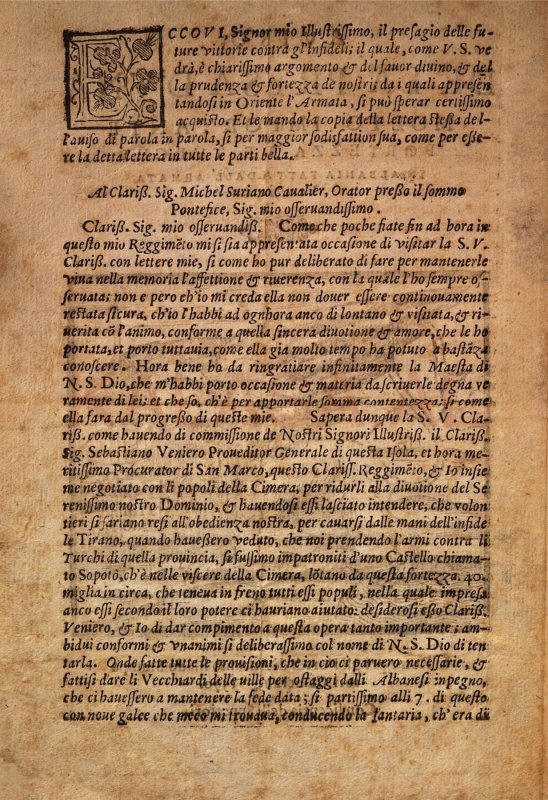 ECCOVI, Signor mio Illustrissimo, il presagio delle fu-
ture vittorie contra gl'Infideli; il quale, come V. S. ve
drà, è chiarissimo argomento & del fauor diuino, & del
la prudenza & fortezza de nostri; da i quali appresen
tandosi in Oriente l'Armata, si può sperar certissimo
acquisto. Et le mando la copia della lettera stessa del
l'auiso di parola in parola, sì per maggior sodisfattion sua, come per esse
re la detta lettera in tutte le parti bella.
Al Clariß. Sig. Michel Suriano Caualier, Orator presso il sommo
Pontefice, Sig. mio osseruandissimo.
Clariß. Sig. mio osseruandiß. Come che poche fiate fin ad hora in
questo mio Reggimẽto mi si sia appresentata occasione di visitar la S. V.
Clariß. con lettere mie, si come ho pur deliberato di fare per mantenerle
viua nella memoria l'affettione & riuerenza, con la quale l'ho sempre os-
seruata; non e però ch'io mi creda ella non douer essere continouamente
restata sicura, ch'io l'habbi ad ognhora anco di lontano & visitata, & ri-
uerita cõ l'animo, conforme a quella sincera diuotione & amore, che le ho
portata, et porto tuttauia, come ella gia molto tempo ha potuto a bastãza
conoscere. Hora bene ho da ringratiare infinitamente la Maesta di
N. S. Dio, che m'habbi porto occasione & materia da scriuerle degna ve
ramente di lei: et che so, ch'è per apportarle somma contentezza; si come
ella fara dal progresso di queste mie. Sapera dunque la S. V. Cla-
riß. come hauendo di commissione de Nostri Signori Illustriß. il Clariß.
Sig. Sebastiano Veniero Proueditor Generale di questa Isola, et hora me-
ritissimo Procurator di San Marco, questo Clariss. Reggimẽto, & Io insie
me negotiato con li popoli della Cimera, per ridurli alla diuotione del Se
renissimo nostro Dominio, & hauendosi essi lasciato intendere, che volon
tieri si sariano resi all'obedienza nostra, per cauarsi dalle mani dell'infide
le Tirano, quando hauessero veduto, che noi prendendo l'armi contra li
Turchi di quella prouincia, si fussimo impatroniti d'uno Castello chiama-
to Sopotò, ch'è nelle viscere della Cimera, lõtano da questa fortezza. 40.
miglia in circa, che teneua in freno tutti essi populi, nella quale impresa
anco essi secondo il loro potere ci hauriano aiutato: desiderosi esso Clariß.
Veniero, & Io di dar compimento a questa opera tanto importante; am-
bidui conformi & vnanimi si deliberassimo col nome di N. S. Dio di ten
tarla. Onde fatte tutte le prouisioni, che in ciò ci paruero necessarie, &
fattisi dare li Vecchiardi delle ville per ostaggi dalli Albanesi in pegno,
che ci hauessero a mantenere la fede data; si partissimo alli 7. di questo
con noue galee che meco mi trouaua, conducendo la fantaria, ch'era di